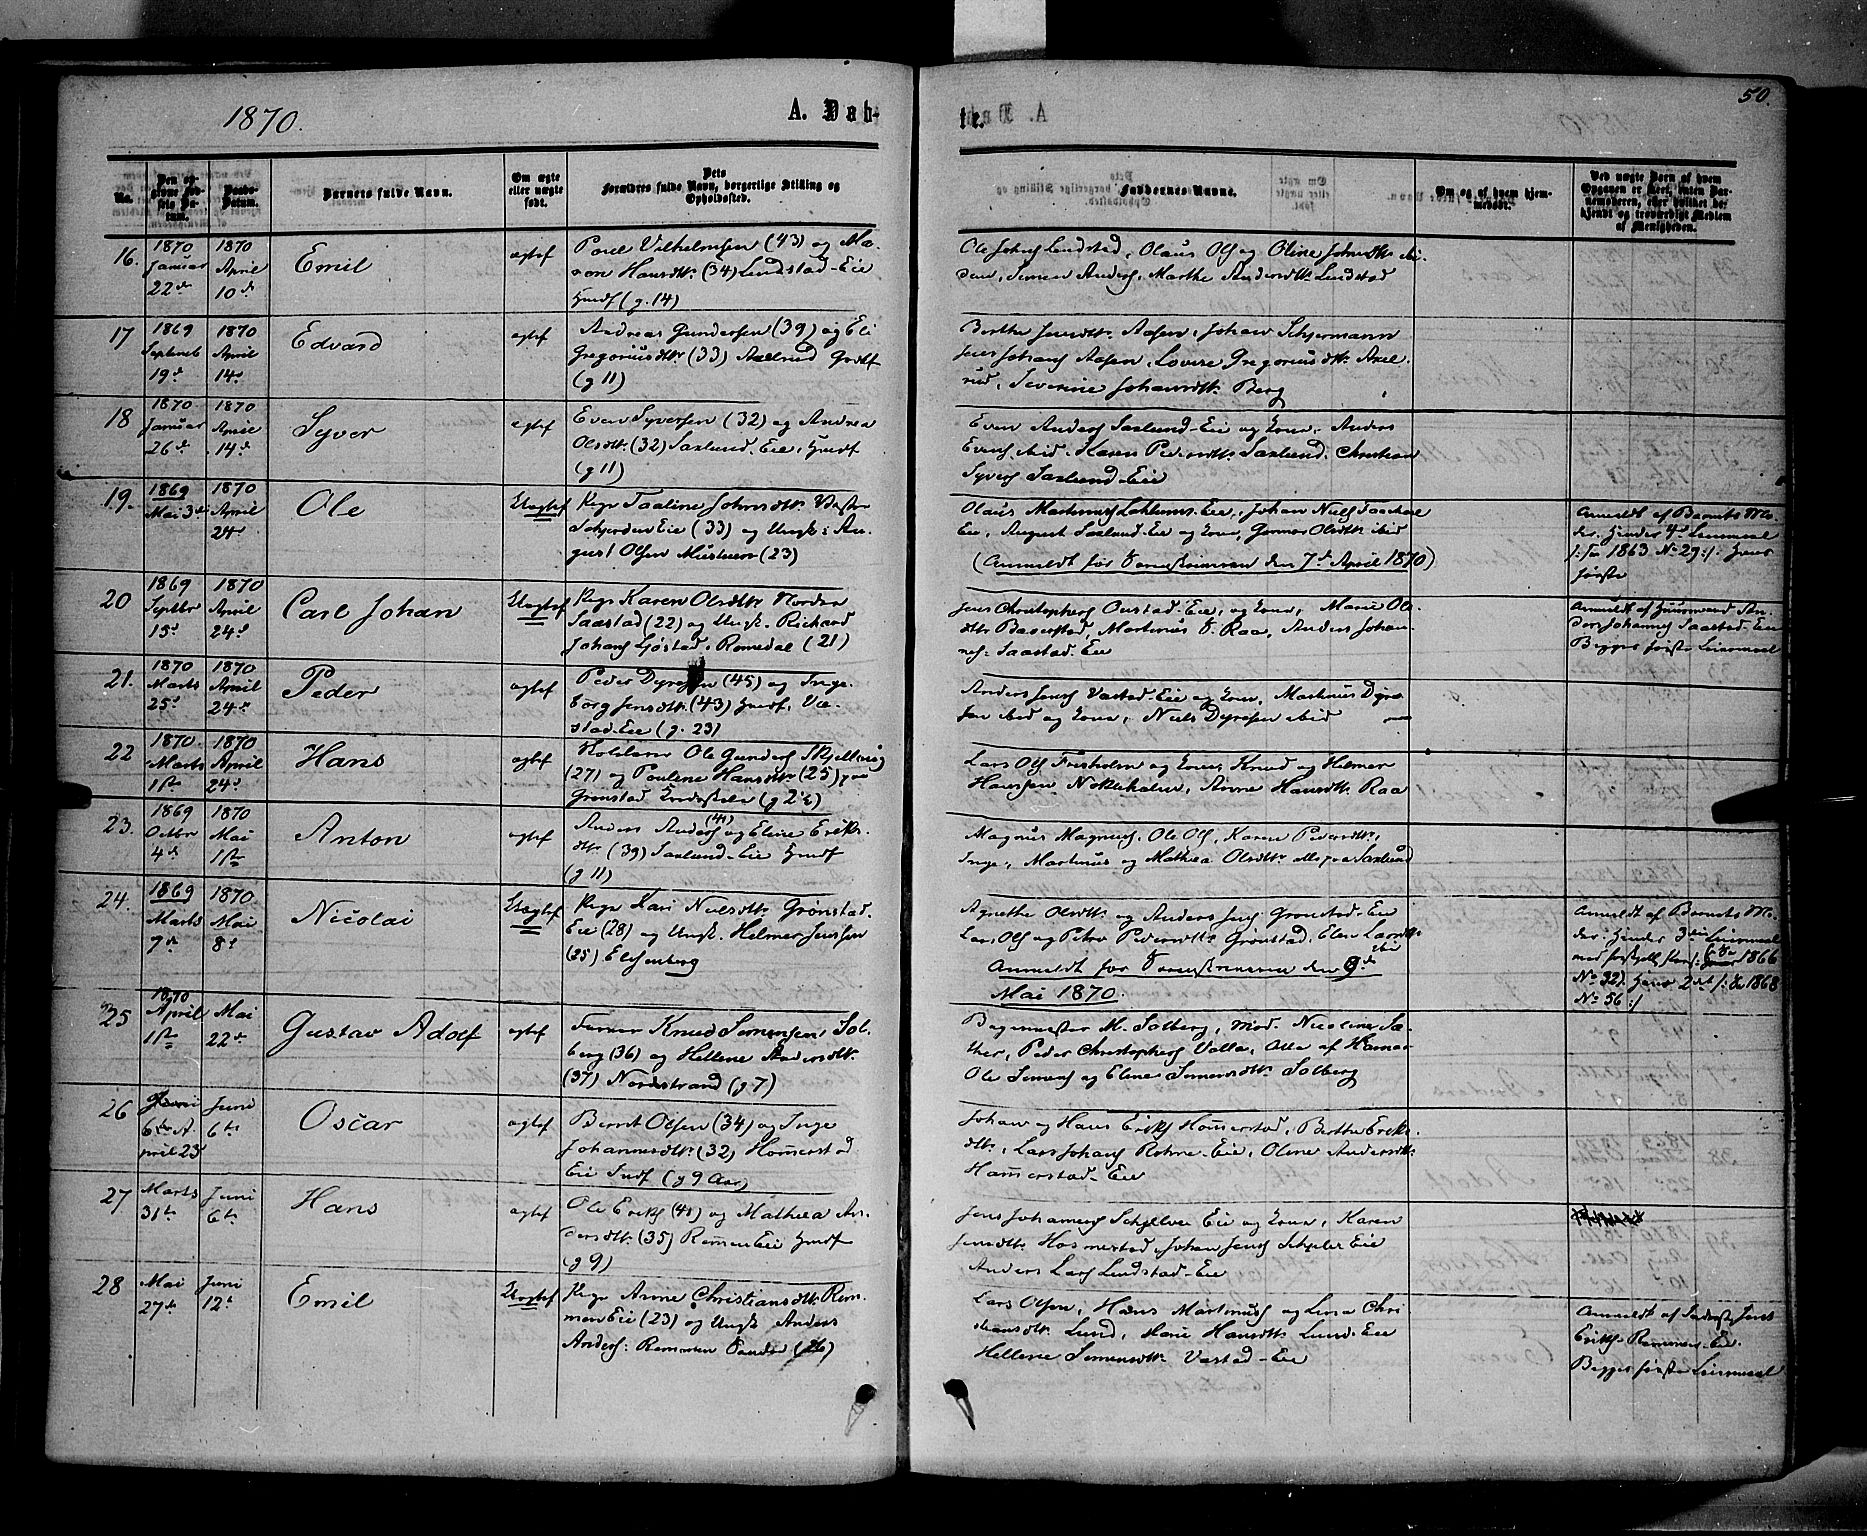 1870.
A. Dab-
te.
50.
No.
Den opgivne Fødsels Datum.
Daabs-Datum.
Barnets fulde Navn.
Om ægte eller uægte født.
Dets Forældres fulde Navn, borgerlige Stilling og Opholdssted.
Faddernes Navne.
Om og af hvem hjemmedøbt.
Ved uægte Barn af hvem Opgaven er skeet, enten Barnemoderen, eller hvilket bekjendt og troværdigt Medlem af Menigheden.
16.
1870 Januar 22de
1870 April 10de
Emil
ægtef
Poul Vilhelmsen (43) og Ma-
ren Hansdtr (34) Lundstad-Eie
Husf (g. 14)
Ole Johns Lundstad, Olaus Ols og Oline Johnsdtr ibi-
dem, Simen Anders, Marthe Andersdtr Lundstad
17
1869 Septemb 19de
1870 April 14de
Edvard
ægtef
Andreas Gundersen (39) og Eli
Gregoriusdtr (33) Grdf
(g 11)
Berthe Jensdtr Aasen, Johan Schjermann
Jens Johans Aasen, Lovise Gregoriusdtr Axel-
rud, Severine Johansdtr Berg
18
1870 Januar 26de
1870 April 14de
Syver
ægtef
Even Syversen (32) og Andrea
Olsdtr (32) Saxlund-Eie, Husf
(g 11)
Even Anders Saxlund-Eie og Kone, Anders
Evens ibid. Karen Pedersdtr Saxlund. Christian
Syvers Saxlund-Eie
19.
1869 Mai 3de
1870 April 24de
Ole
Uægtef
Pige Taaline Johnsdtr Vestre
Eie (33) og Ungk: Au-
gust Olsen (23)
Olaus Martinus Eie, Johan Niels
Eie, August Saxlund-Eie og Kone, Olsdtr ibid
(Anmeldt for den 7de April 1870)
Anmeldt af Barnets Mo-
der. Hendes 4de Leiermaal
/: Fra 1863 No 29:/. Hans
første
20
1869 Septbr 15de
1870 April 24de
Carl Johan
Uægtef
Pige Karen Olsdtr Nordre
Saastad (22) og Ungk. Richard
Johans Sjøstad, Romedal (21)
Jens Christophers Eie, og Kone, Marie Ols-
dtr, Martinus Raa, Anders Johan-
nes: Saastad-Eie
Anmeldt af Huusmand An-
ders Johannes Saastad-Eie
Begges første Leiermaal
21.
1870 Marts 25de
1870 April 24de
Peder
ægtef
Peder Dyresen (45) og Inge-
borg Jensdtr (43) Husf, Væ-
stad-Eie (g. 23)
Anders Jens Væstad-Eie og Kone, Martinus Dyre-
sen ibid og Kone, Niels Dyresen ibid
22
1870 Marts 1ste
1870 April 24de
Hans
ægtef
Ole Gunders
(27) og Pauline Hansdtr (25) paa
Grønstad
Lars Ols og Kone, Knud og Helmer
Hansen, Anne Hansdtr Raa
23.
1869 Octbr 4de
1870 Mai 1ste
Anton
ægtef
Anders Anders (41) og Eline Eriks-
dtr (39) Saxlund-Eie Husf
(g 11)
Magnus Magnus, Ole Ols, Karen Pedersdtr,
Inge, Martinus og Mathea Olsdtr alle paa Saxlund
24.
1869 Marts 7de
1870 Mai 8de
Nicolai
Uægtef
Pige Kari Nielsdtr Grønstad-
Eie (28) og Ungk. Helmer Jensen
(25)
Agnethe Olsdtr og Anders Jens Grønstad-Eie
Lars Ols og Petra Pedersdtr Grønstad, Elen Larsdtr
ibid
Anmeldt for den 9de
Mai 1870.
Anmeldt af Barnets Mo-
der. Hendes 3die Leiermaal
1866
No 32). Hans 2det /: Fra 1868
No 56:/
25
1870 April 11te
Mai 22de
Gustav Adolf
ægtef
Knud Simensen, Sol-
berg (36) og Hellene Andersdtr
(37) Nordstrand (g 7)
M. Solberg, Nicoline Sæ-
ther, Peder Christophers Valle, af Hamar
Ole Simens og Eline Simensdtr Solberg
26
April 23
Juni 6te
Oscar
ægtef
Bernt Olsen (34) og Inge
Johannesdtr (32) Hommerstad
Eie Indf (g 9 Aar)
Johan og Hans Eriks Hommerstad, Berthe Eriks-
dtr, Lars Johans Eie, Oline Andersdtr
Hammerstad-Eie
27
Marts 31te
Juni 6te
Hans
ægtef
Ole Eriks (41) og Mathea An-
dersdtr (35) Remmen Eie Husf
(g 9)
Jens Johannes Eie og Kone, Karen
Jensdtr, Johan Jens Eie
Anders Lars Lundstad-Eie
28
Mai 27de
Juni 12te
Emil
Uægtef
Pige Anne Christiansdtr Rem-
men Eie (23) og Ungk Anders
Anders: Remmen (26)
Lars Olsen, Hans Martinus og Lina Chri-
stiansdtr Lund, Marie Hansdtr Lund-Eie
Hellene Simensdtr Væstad-Eie
Anmeldt af
Eriks-Remmen-Eie.
Begges første Leiermaal